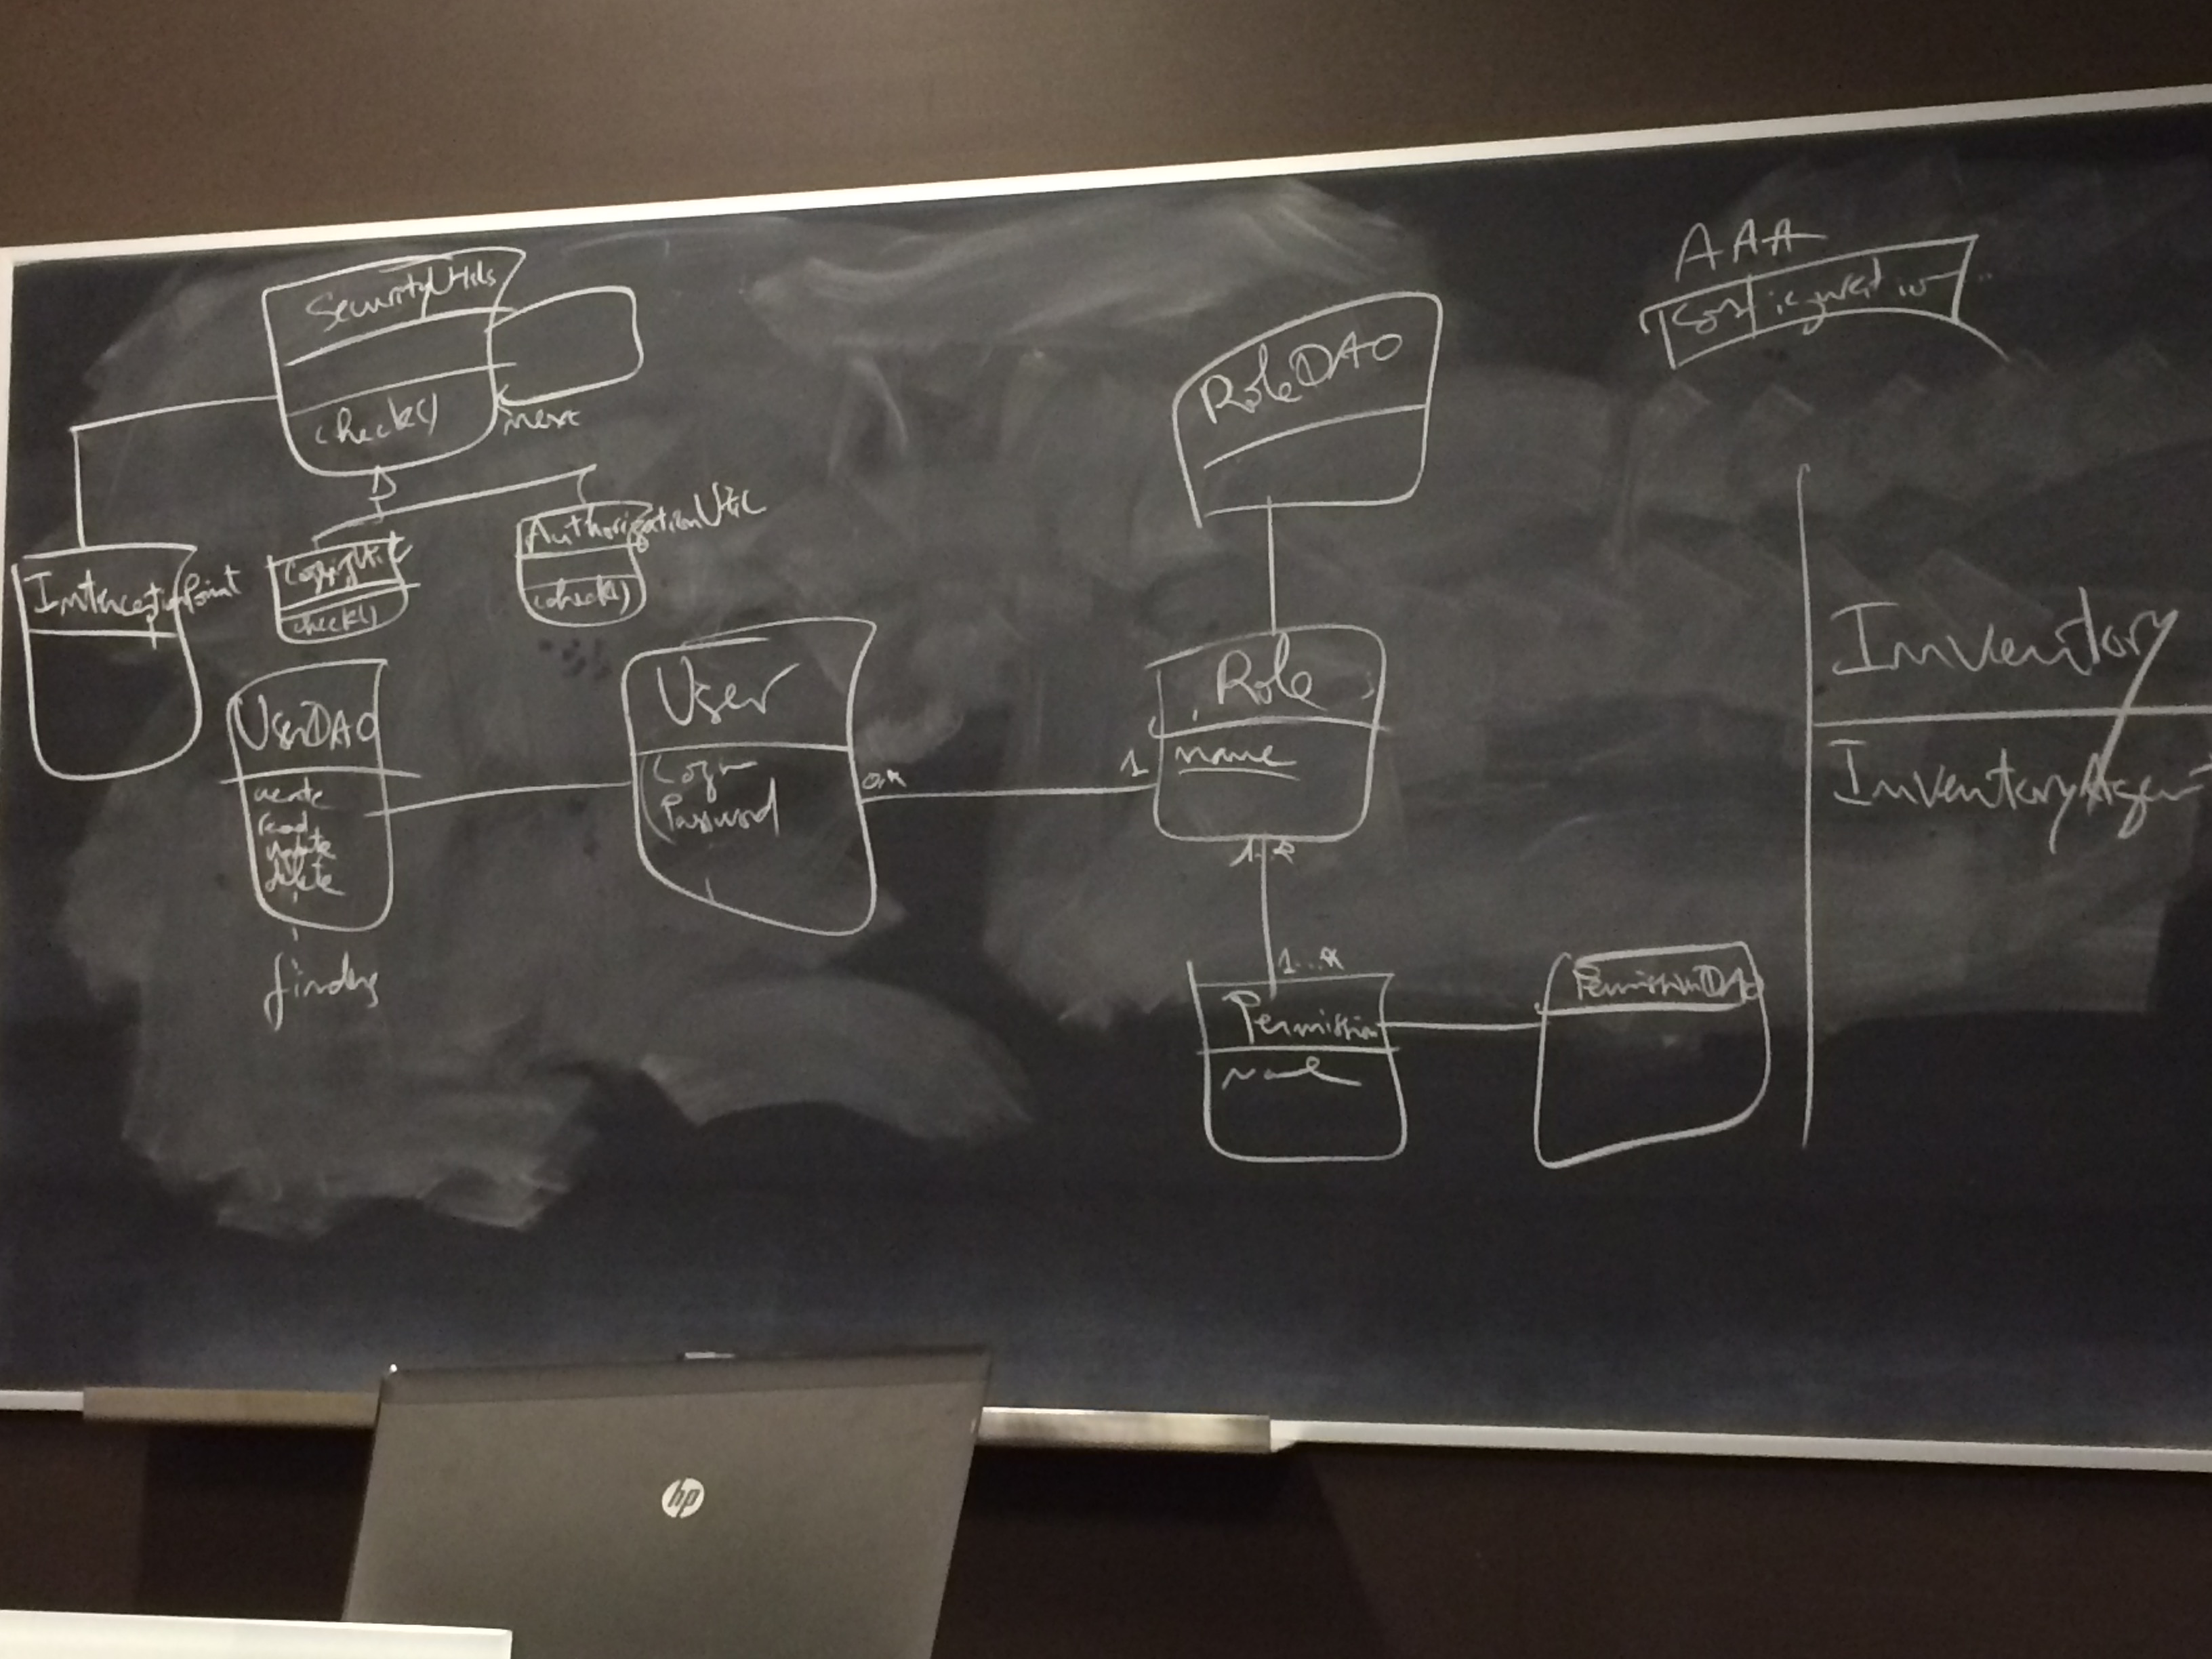 SecurityUtils
check()
next
InterceptionPoint
check()
AuthorizationUtil
check()
UserDAO
create
read
update
delete
finders
User
Login
Password
0..*
1
RoleDAO
Role
name
1..*
1...*
Permission
name
PermissionDAO
AAA
Configuration
Inventory
InventoryAgent
hp